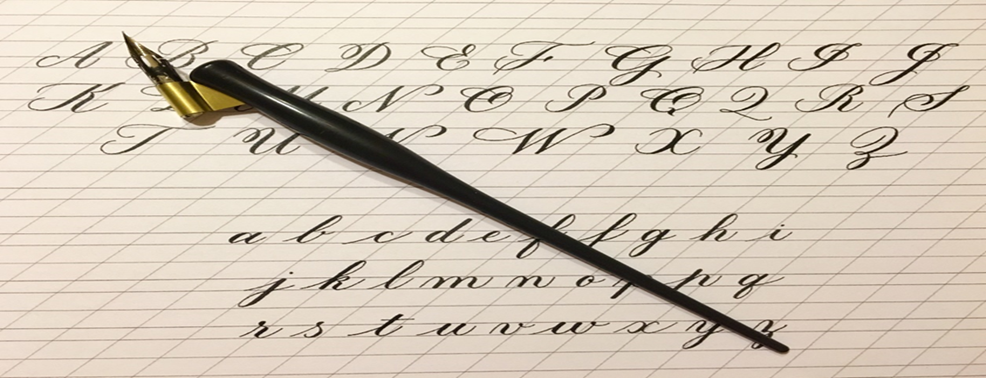 A B C D E F G H I J
K L M N O P Q Q R S
T U V W X Y Z
a b c d e f f g h i
j k l m n o p p q
r s t u v w x y z